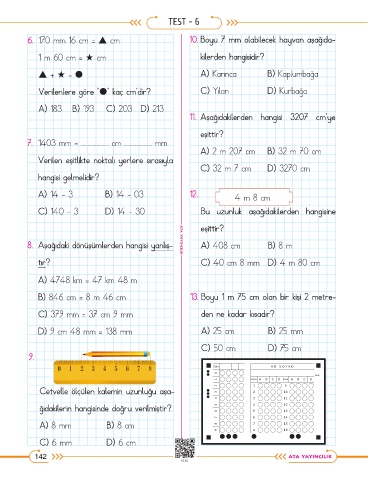 TEST - 6
6. 170 mm 16 cm = ▲ cm
1 m 60 cm = ★ cm
▲ + ★ = ●
Verilenlere göre "●" kaç cm'dir?
A) 183 B) 193 C) 203 D) 213
7. 1403 mm = ............ cm ............ mm
Verilen eşitlikte noktalı yerlere sırasıyla
hangisi gelmelidir?
A) 14 - 3 B) 14 - 03
C) 140 - 3 D) 14 - 30
8. Aşağıdaki dönüşümlerden hangisi yanlış-
tır?
A) 4748 km = 47 km 48 m
B) 846 cm = 8 m 46 cm
C) 379 mm = 37 cm 9 mm
D) 9 cm 48 mm = 138 mm
9.
0 1 2 3 4 5 6 7 8
Cetvelle ölçülen kalemin uzunluğu aşa-
ğıdakilerin hangisinde doğru verilmiştir?
A) 8 mm B) 8 cm
C) 6 mm D) 6 cm
10. Boyu 7 mm olabilecek hayvan aşağıda-
kilerden hangisidir?
A) Karınca B) Kaplumbağa
C) Yılan D) Kurbağa
11. Aşağıdakilerden hangisi 3207 cm'ye
eşittir?
A) 2 m 207 cm B) 32 m 70 cm
C) 32 m 7 cm D) 3270 cm
12.
4 m 8 cm
Bu uzunluk aşağıdakilerden hangisine
eşittir?
A) 408 cm B) 8 m
C) 40 cm 8 mm D) 4 m 80 cm
13. Boyu 1 m 75 cm olan bir kişi 2 metre-
den ne kadar kısadır?
A) 25 cm B) 25 mm
C) 50 cm D) 75 cm
142
ATA YAYINCILIK